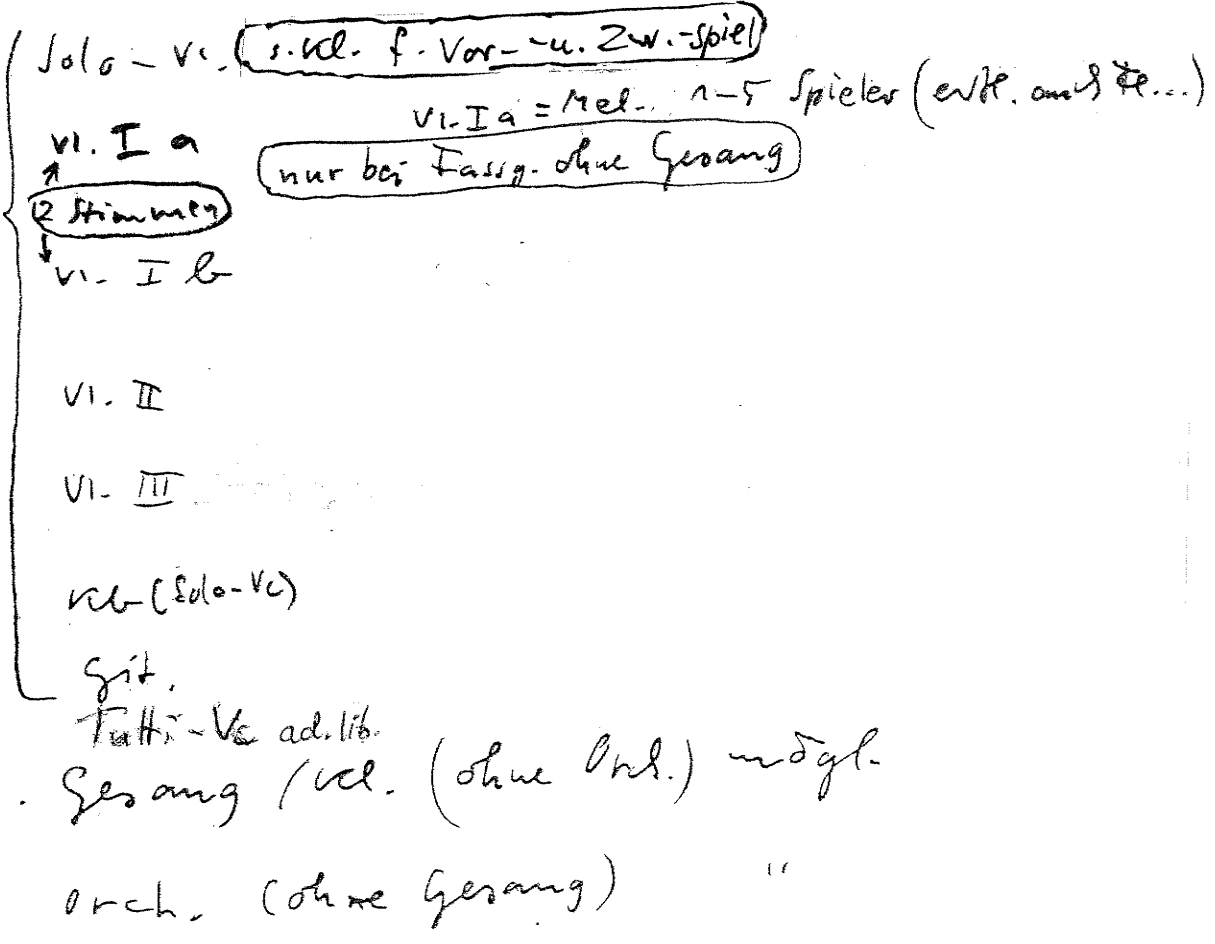 Solo-Vl. s. Kl. f. Vor- u. Zw.-Spiel
Vl. I a = Mel. 1-5 Spieler (evtl. auch
Vl. I a
nur bei Fassg. ohne Gesang
2 Stimmen
Vl. I b
Vl. II
Vl. III
Kb (Solo-Vc)
Git.
Tutti-Vc ad.lib.
Gesang / Kl. (ohne Orch.) mögl.
Orch. (ohne Gesang) "